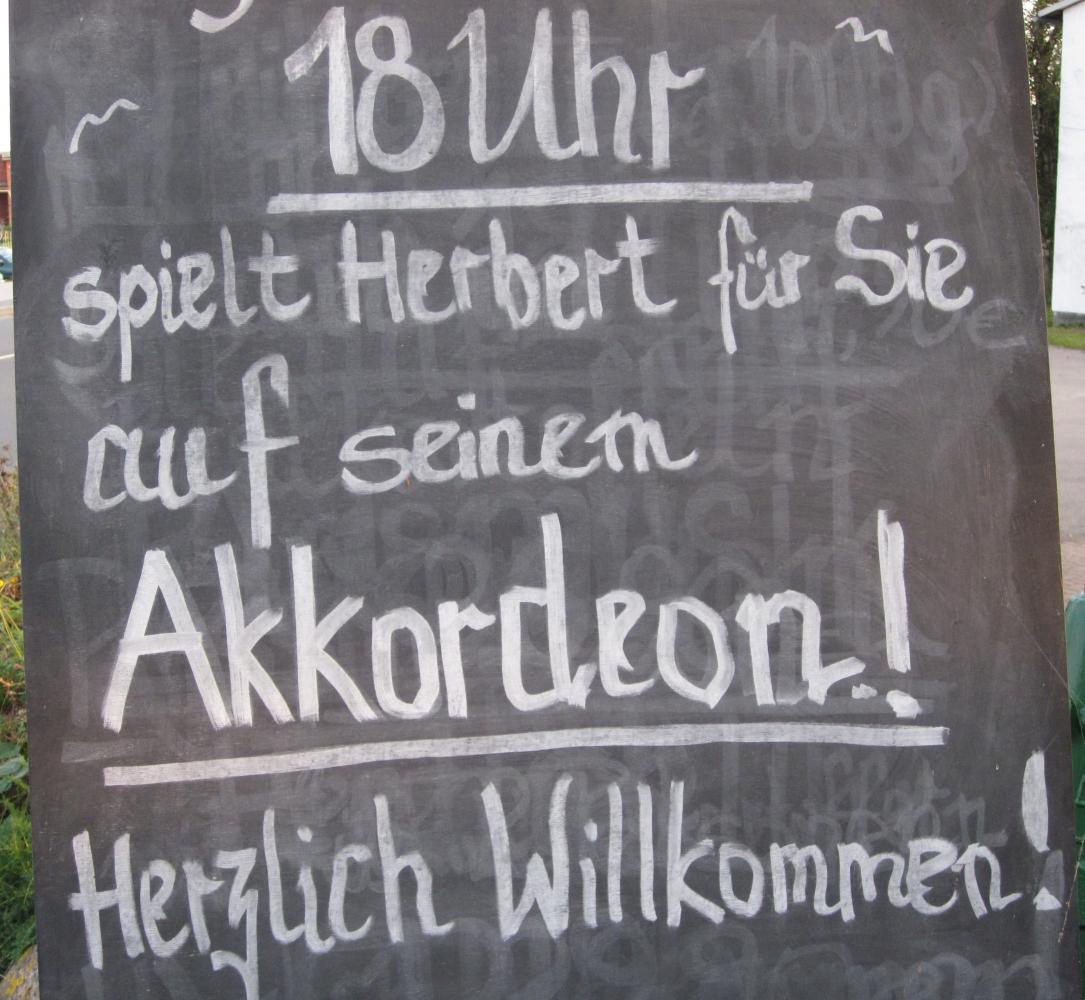 18 Uhr
spielt Herbert für Sie
auf seinem
Akkordeon!
Herzlich Willkommen!